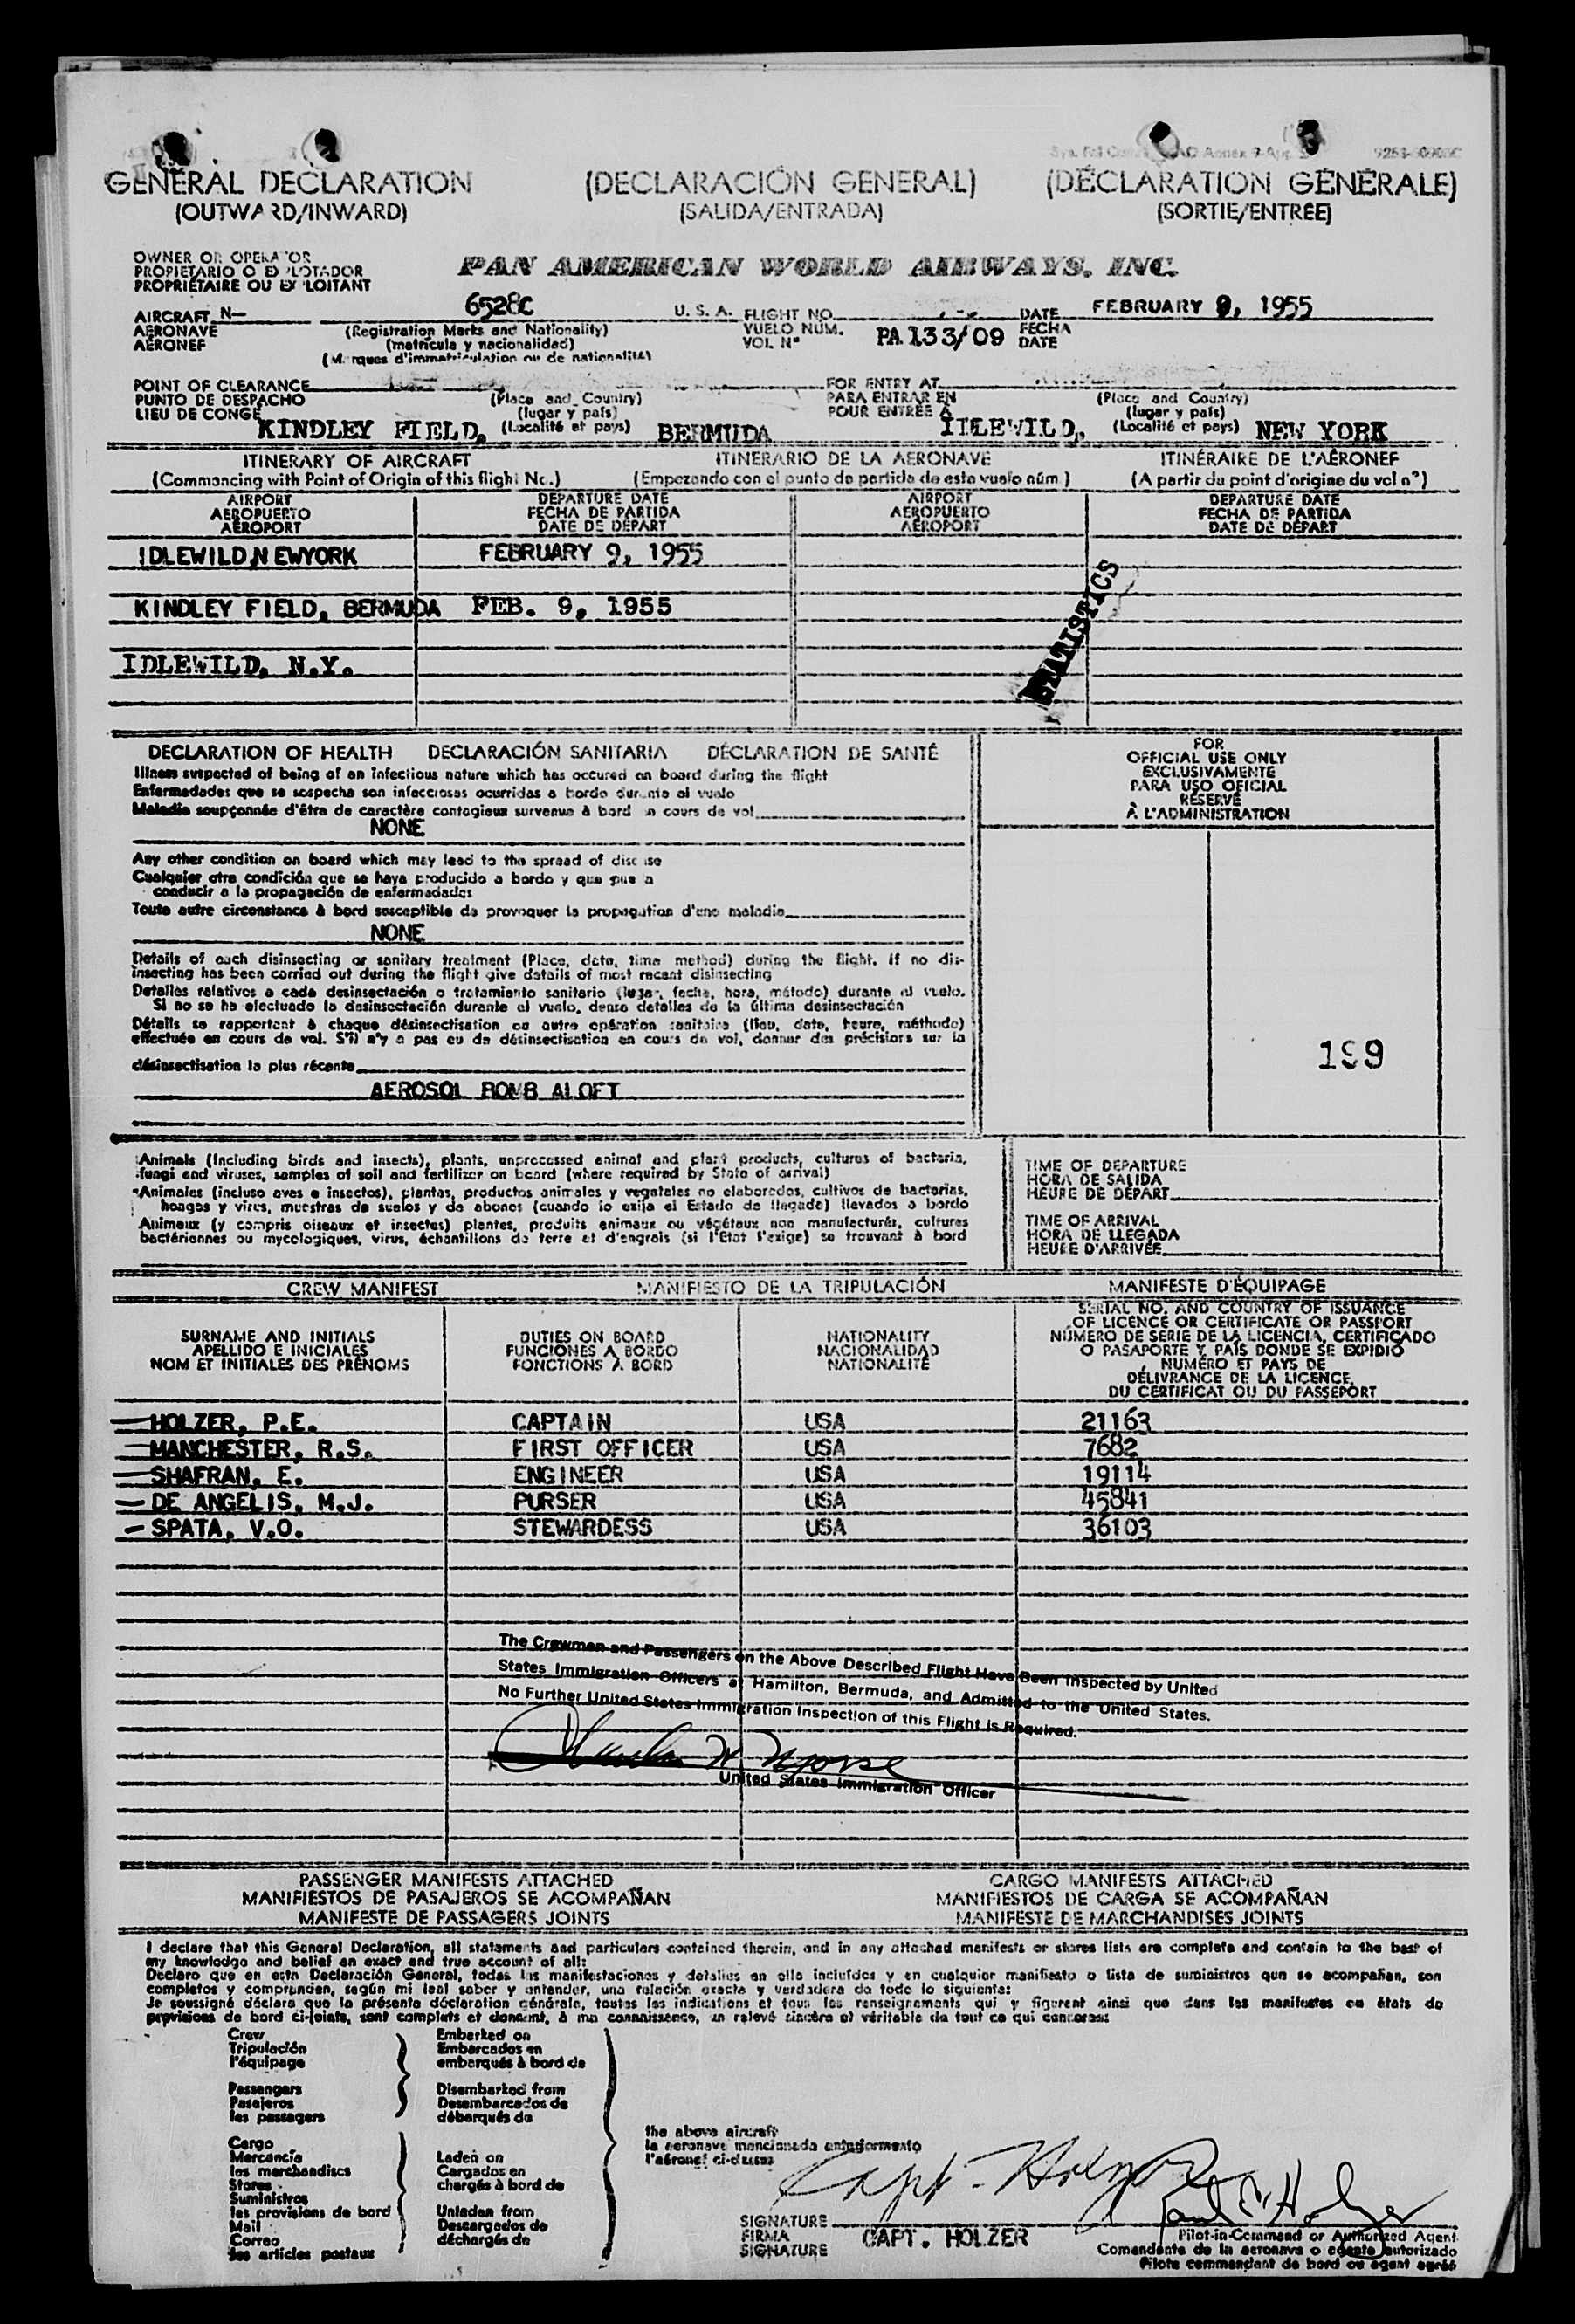 GENERAL DECLARATION (DECLARACIÓN GENERAL) (DÉCLARATION GÉNÉRALE)
(OUTWARD/INWARD) (SALIDA/ENTRADA) (SORTIE/ENTRÉE)
OWNER OR OPERATOR
PROPIETARIO O EXPLOTADOR
PROPRIÉTAIRE OU EXPLOITANT
PAN AMERICAN WORLD AIRWAYS, INC.
AIRCRAFT N— 6528C U. S. A. FLIGHT NO. DATE FEBRUARY 9, 1955
AERONAVE (Registration Marks and Nationality) VUELO NÚM. PA 133/09 FECHA
AÉRONEF (matrícula y nacionalidad) VOL Nº DATE
(Marques d'immatriculation ou de nationalité)
POINT OF CLEARANCE (Place and Country) FOR ENTRY AT (Place and Country)
PUNTO DE DESPACHO (lugar y país) PARA ENTRAR EN (lugar y país)
LIEU DE CONGÉ (Localité et pays) POUR ENTRÉE À (Localité et pays)
KINDLEY FIELD, BERMUDA IDLEWILD, NEW YORK
ITINERARY OF AIRCRAFT ITINERARIO DE LA AERONAVE ITINÉRAIRE DE L'AÉRONEF
(Commencing with Point of Origin of this flight No.) (Empezando con el punto de partida de este vuelo núm.) (A partir du point d'origine du vol nº)
AIRPORT DEPARTURE DATE AIRPORT DEPARTURE DATE
AEROPUERTO FECHA DE PARTIDA AEROPUERTO FECHA DE PARTIDA
AÉROPORT DATE DE DÉPART AÉROPORT DATE DE DÉPART
IDLEWILD,N EWYORK FEBRUARY 9, 1955
KINDLEY FIELD, BERMUDA FEB. 9, 1955
STATISTICS
IDLEWILD, N.Y.
DECLARATION OF HEALTH DECLARACIÓN SANITARIA DÉCLARATION DE SANTÉ
Illness suspected of being of an infectious nature which has occured on board during the flight
Enfermedades que se sospecha son infecciosas ocurridas a bordo durante el vuelo
Maladie soupçonnée d'être de caractère contagieux survenue à bord en cours de vol
NONE
Any other condition on board which may lead to the spread of disease
Cualquier otra condición que se haya producido a bordo y que pueda
conducir a la propagación de enfermedades
Toute autre circonstance à bord susceptible de provoquer la propagation d'une maladie
NONE
Details of each disinsecting or sanitary treatment (Place, date, time method) during the flight. If no dis-
insecting has been carried out during the flight give details of most recent disinsecting
Detalles relativos a cada desinsectación o tratamiento sanitario (lugar, fecha, hora, método) durante el vuelo.
Si no se ha efectuado la desinsectación durante el vuelo, dense detalles de la última desinsectación
Détails se rapportant à chaque désinsectisation ou autre opération sanitaire (lieu, date, heure, méthode)
effectuée en cours de vol. S'il n'y a pas eu de désinsectisation en cours de vol, donner des précisions sur la
désinsectisation la plus récente
AEROSOL BOMB ALOFT
FOR
OFFICIAL USE ONLY
EXCLUSIVAMENTE
PARA USO OFICIAL
RÉSERVÉ
À L'ADMINISTRATION
199
Animals (Including birds and insects), plants, unprocessed animal and plant products, cultures of bacteria,
fungi and viruses, samples of soil and fertilizer on board (where required by State of arrival)
Animales (incluso aves e insectos), plantas, productos animales y vegetales no elaborados, cultivos de bacterias,
hongos y virus, muestras de suelos y de abonos (cuando lo exija el Estado de llegada) llevados a bordo
Animaux (y compris oiseaux et insectes) plantes, produits animaux ou végétaux non manufacturés, cultures
bactériennes ou mycologiques, virus, échantillons de terre et d'engrais (si l'Etat l'exige) se trouvant à bord
TIME OF DEPARTURE
HORA DE SALIDA
HEURE DE DÉPART
TIME OF ARRIVAL
HORA DE LLEGADA
HEURE D'ARRIVÉE
CREW MANIFEST MANIFIESTO DE LA TRIPULACIÓN MANIFESTE D'ÉQUIPAGE
SURNAME AND INITIALS
APELLIDO E INICIALES
NOM ET INITIALES DES PRÉNOMS
DUTIES ON BOARD
FUNCIONES A BORDO
FONCTIONS À BORD
NATIONALITY
NACIONALIDAD
NATIONALITÉ
SERIAL NO. AND COUNTRY OF ISSUANCE
OF LICENCE OR CERTIFICATE OR PASSPORT
NÚMERO DE SERIE DE LA LICENCIA, CERTIFICADO
O PASAPORTE Y PAÍS DONDE SE EXPIDIÓ
NUMÉRO ET PAYS DE
DÉLIVRANCE DE LA LICENCE,
DU CERTIFICAT OU DU PASSEPORT
HOLZER, P.E. CAPTAIN USA 21163
MANCHESTER, R.S. FIRST OFFICER USA 7682
SHAFRAN, E. ENGINEER USA 19114
DE ANGELIS, M.J. PURSER USA 45841
SPATA, V.O. STEWARDESS USA 36103
The Crewmen and Passengers on the Above Described Flight Have Been Inspected by United
States Immigration Officers at Hamilton, Bermuda, and Admitted to the United States.
No Further United States Immigration Inspection of this Flight is Required.
United States Immigration Officer
PASSENGER MANIFESTS ATTACHED CARGO MANIFESTS ATTACHED
MANIFIESTOS DE PASAJEROS SE ACOMPAÑAN MANIFIESTOS DE CARGA SE ACOMPAÑAN
MANIFESTE DE PASSAGERS JOINTS MANIFESTE DE MARCHANDISES JOINTS
I declare that this General Declaration, all statements and particulars contained therein, and in any attached manifests or stores lists are complete and contain to the best of
my knowledge and belief an exact and true account of all:
Declaro que en esta Declaración General, todas las manifestaciones y detalles en ella incluídos y en cualquier manifiesto o lista de suministros que se acompañan, son
completos y comprenden, según mi leal saber y entender, una relación exacta y verdadera de todo lo siguiente:
Je soussigné déclare que la présente déclaration générale, toutes les indications et tous les renseignements qui y figurent ainsi que dans les manifestes ou états de
provisions de bord ci-joints, sont complets et donnent, à ma connaissance, un relevé sincère et véritable de tout ce qui concerne:
Crew
Tripulación
l'équipage
Passengers
Pasajeros
les passagers
Cargo
Mercancía
les marchandises
Stores
Suministros
les provisions de bord
Mail
Correo
les articles postaux
Embarked on
Embarcados en
embarqués à bord de
Disembarked from
Desembarcados de
débarqués de
Laden on
Cargados en
chargés à bord de
Unladen from
Descargados de
déchargés de
the above aircraft
la aeronave mencionada anteriormente
l'aéronef ci-dessus
Capt. Holzer
Paul E. Holzer
SIGNATURE
FIRMA CAPT. HOLZER
SIGNATURE
Pilot-in-Command or Authorized Agent
Comandante de la aeronave o agente autorizado
Pilote commandant de bord ou agent agréé